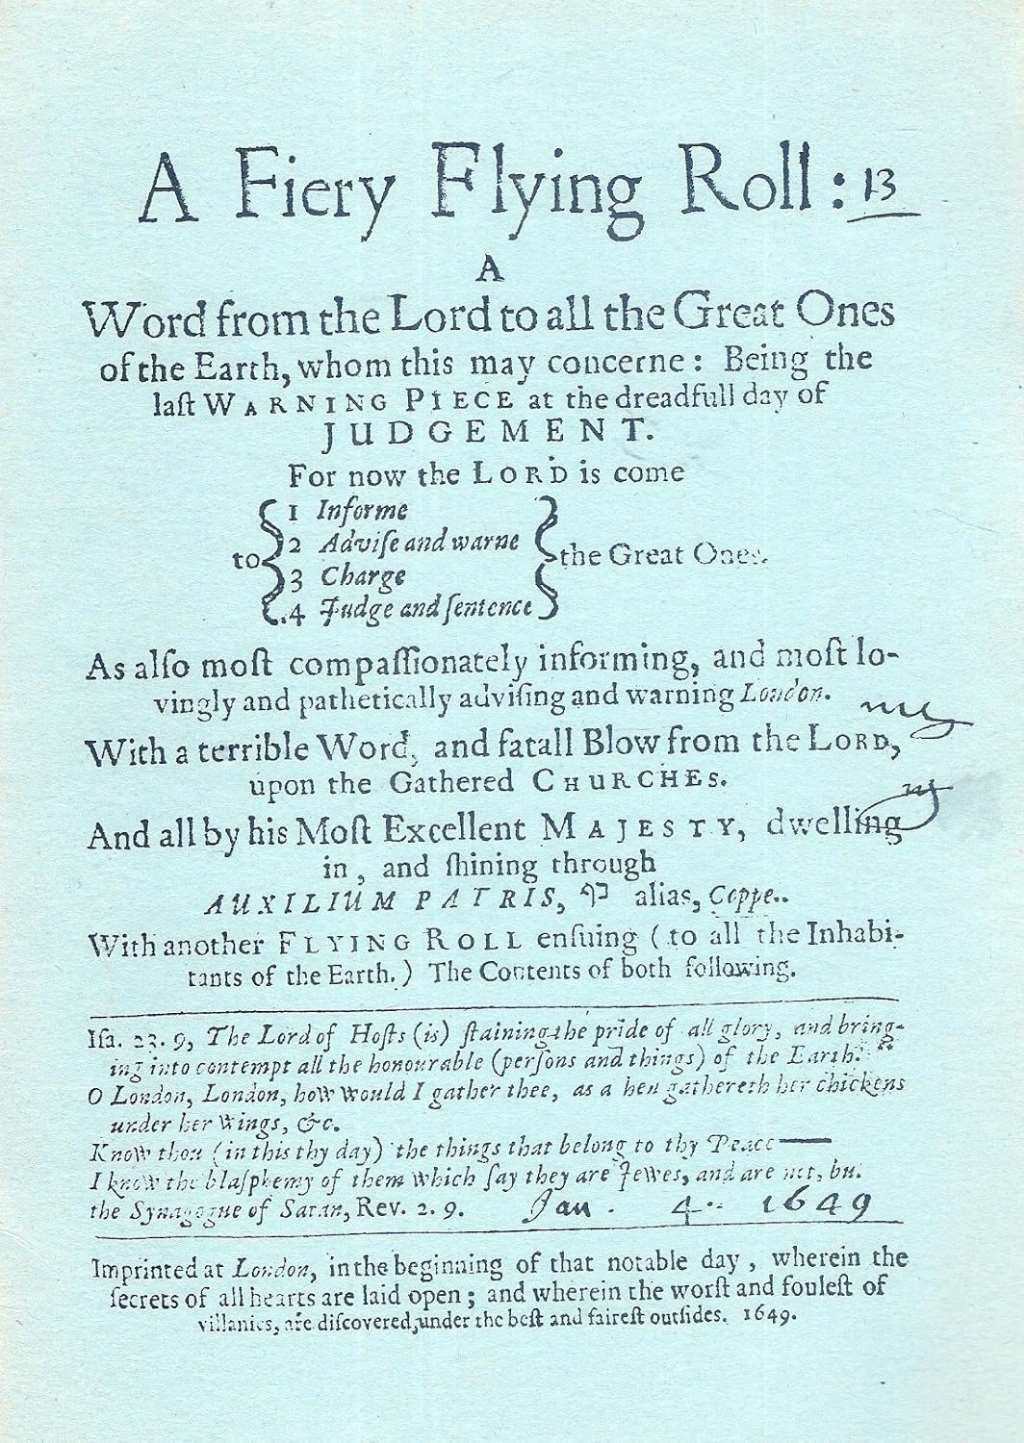 A Fiery Flying Roll: 13
A
Word from the Lord to all the Great Ones
of the Earth, whom this may concerne: Being the
laſt WARNING PIECE at the dreadfull day of
JUDGEMENT.
For now the LORD is come
to
1 Informe
2 Adviſe and warne
3 Charge
4 Judge and ſentence
the Great Ones.
As alſo moſt compaſſionately informing, and moſt lo-
vingly and pathetically adviſing and warning London.
With a terrible Word, and fatall Blow from the LORD,
upon the Gathered CHURCHES.
And all by his Moſt Excellent MAJESTY, dwelling
in, and ſhining through
AUXILIUM PATRIS, alias, Coppe.
With another FLYING ROLL enſuing (to all the Inhabi-
tants of the Earth.) The Contents of both following.
Iſa. 23. 9, The Lord of Hoſts (is) ſtaining the pride of all glory, and bring-
ing into contempt all the honourable (perſons and things) of the Earth.
O London, London, how would I gather thee, as a hen gathereth her chickens
under her wings, &c.
Know thou (in this thy day) the things that belong to thy Peace—
I know the blaſphemy of them which ſay they are Jewes, and are not, but
the Synagogue of Satan, Rev. 2. 9. Jan. 4. 1649
Imprinted at London, in the beginning of that notable day, wherein the
ſecrets of all hearts are laid open; and wherein the worſt and fouleſt of
villanies, are diſcovered, under the beſt and faireſt outſides. 1649.